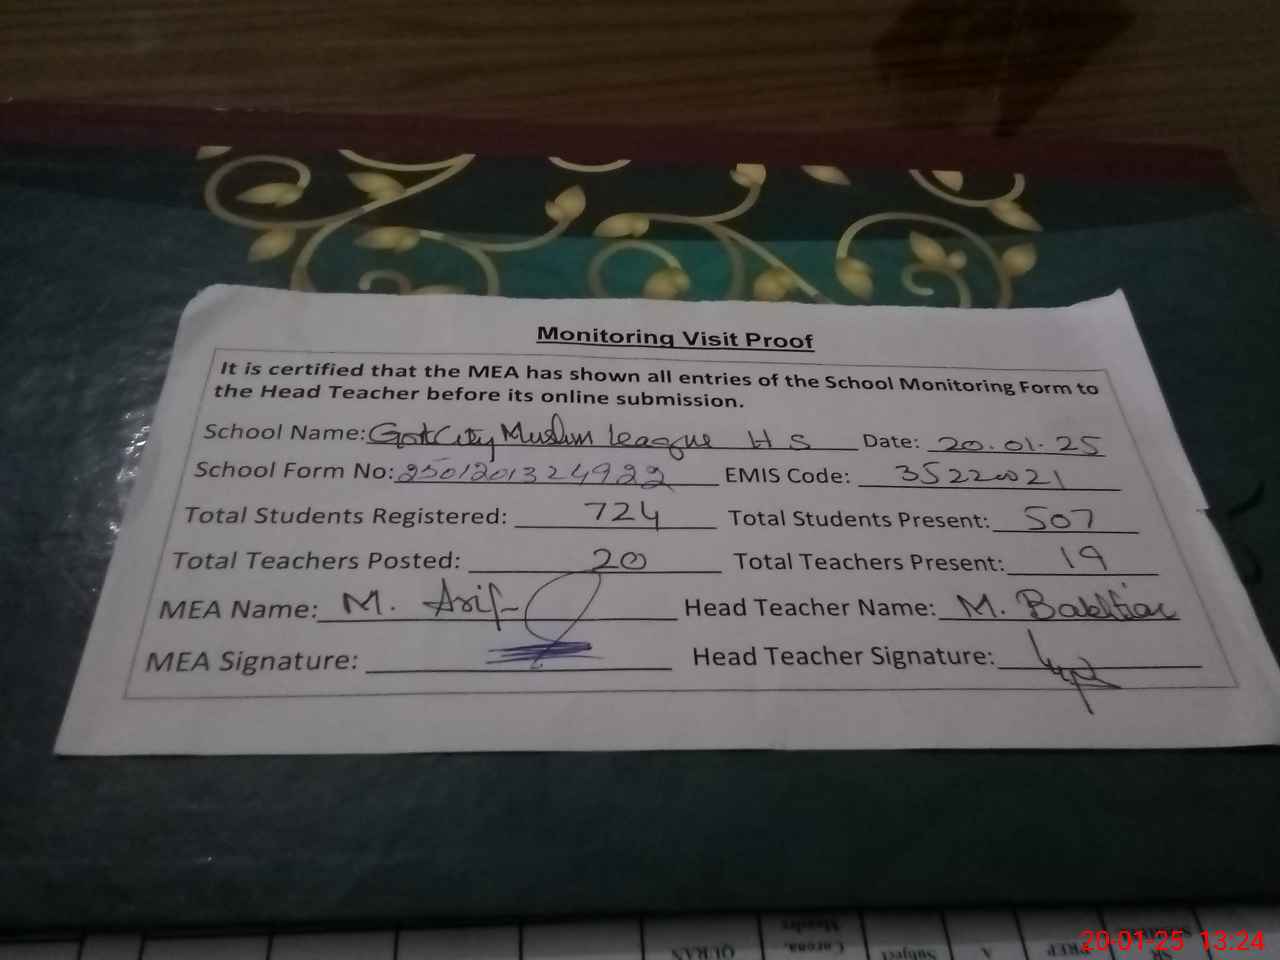 Monitoring Visit Proof
It is certified that the MEA has shown all entries of the School Monitoring Form to
the Head Teacher before its online submission.
School Name: Govt City Muslim League H S Date: 20.01.25
School Form No: 2501201324922 EMIS Code: 35220021
Total Students Registered: 724 Total Students Present: 507
Total Teachers Posted: 20 Total Teachers Present: 19
MEA Name: M. Arif Head Teacher Name: M. Bakhtiar
MEA Signature: Head Teacher Signature:
QURAN Corona, Header Subject A PREP SR
20-01-25 13:24